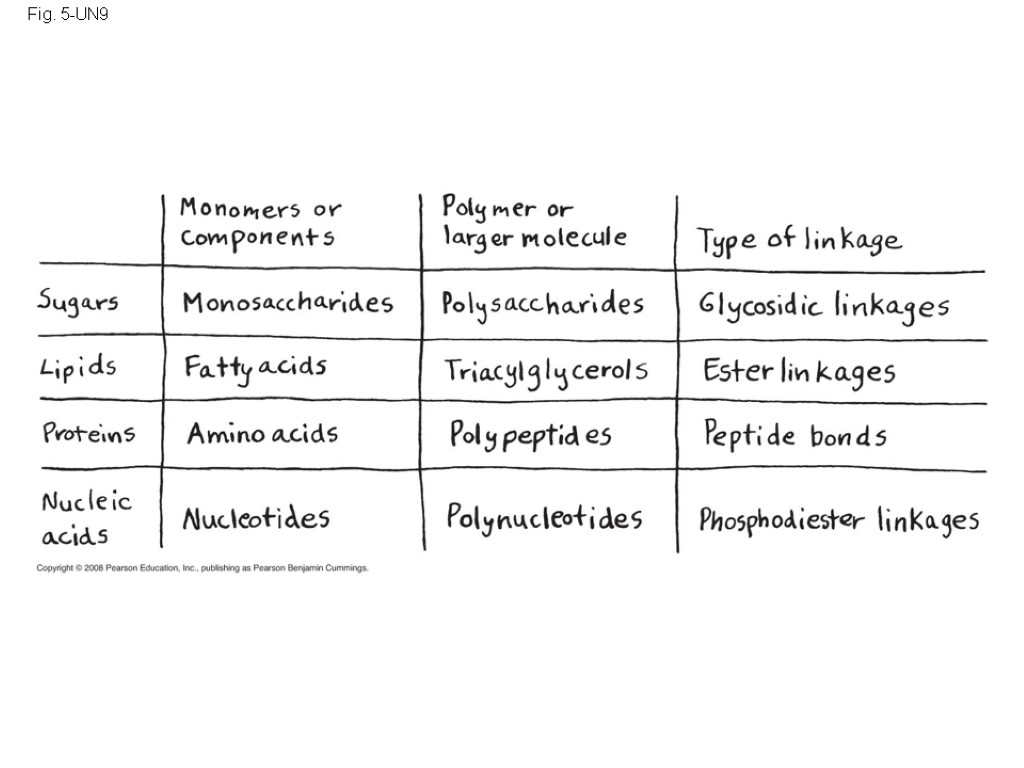 Fig. 5-UN9
Monomers or
components
Polymer or
larger molecule
Type of linkage
Sugars
Monosaccharides
Polysaccharides
Glycosidic linkages
Lipids
Fatty acids
Triacylglycerols
Ester linkages
Proteins
Amino acids
Polypeptides
Peptide bonds
Nucleic
acids
Nucleotides
Polynucleotides
Phosphodiester linkages
Copyright © 2008 Pearson Education, Inc., publishing as Pearson Benjamin Cummings.